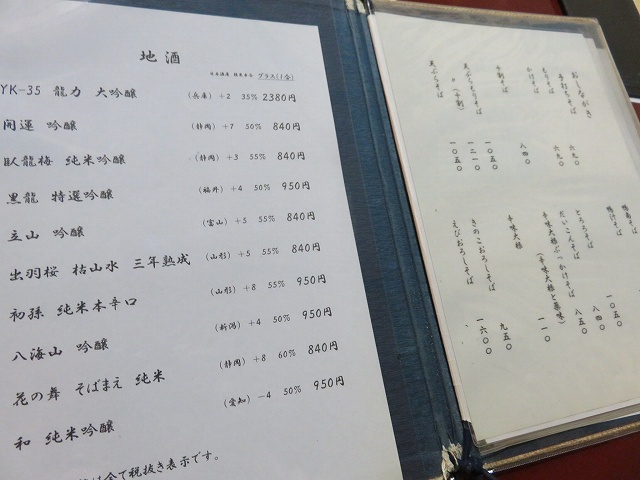 地酒
日本酒度 精米歩合 グラス(1合)
YK-35 龍力 大吟醸 (兵庫) +2 35% 2380円
開運 吟醸 (静岡) +7 50% 840円
臥龍梅 純米吟醸 (静岡) +3 55% 840円
黒龍 特選吟醸 (福井) +4 50% 950円
立山 吟醸 (富山) +5 55% 840円
出羽桜 枯山水 三年熟成 (山形) +5 55% 840円
初孫 純米本辛口 (山形) +8 55% 950円
八海山 吟醸 (新潟) +4 50% 950円
花の舞 そばまえ 純米 (静岡) +8 60% 840円
和 純米吟醸 (愛知) -4 50% 950円
は全て税抜き表示です。
おしながき
手打ちそば 六九〇
もりそば 六九〇
かけそば
辛割そば 八四〇
天ぷらもりそば 一〇五〇
〃 (辛割) 一二一〇
天ぷらそば 一〇五〇
鴨南そば 一〇五〇
鴨汁そば
とろろそば 八四〇
だいこんそば 八五〇
辛味大根ぶっかけそば
(辛味大根と薬味) 一一〇
辛味大根
きのこおろしそば 九五〇
えびおろしそば 一六〇〇